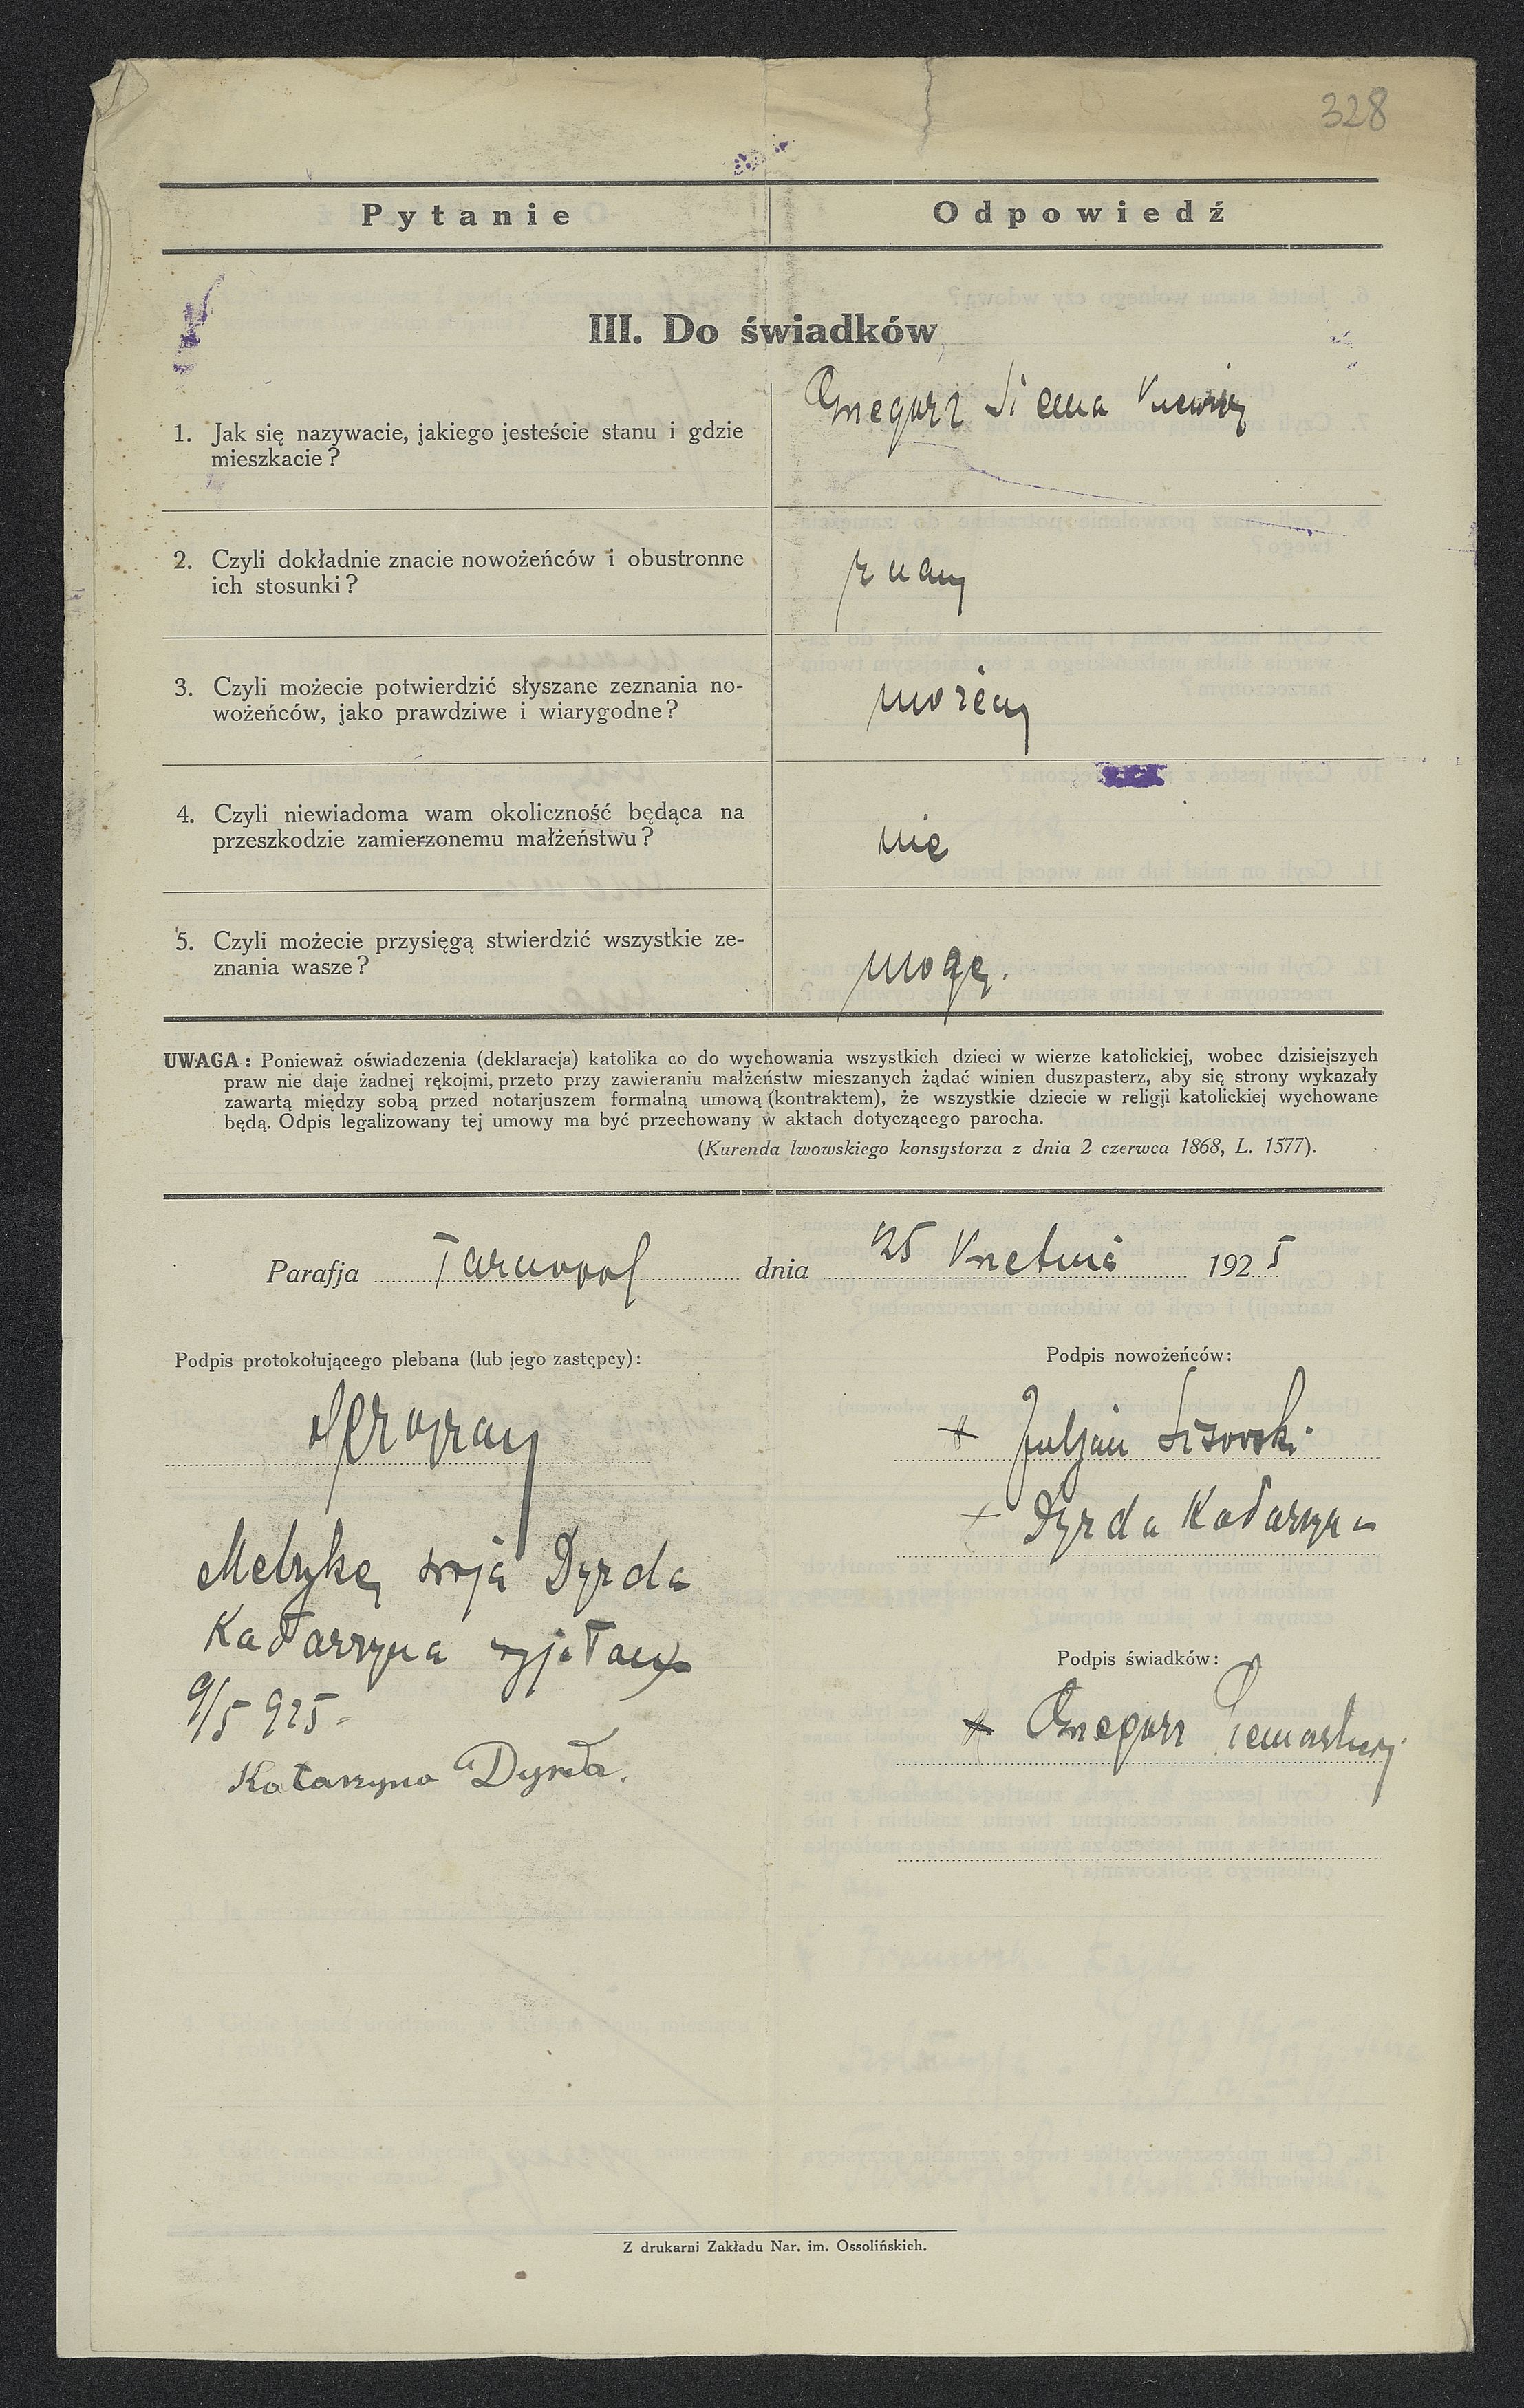 328
Pytanie
Odpowiedź
III. Do świadków
1. Jak się nazywacie, jakiego jesteście stanu i gdzie
mieszkacie?
Grzegorz
2. Czyli dokładnie znacie nowożeńców i obustronne
ich stosunki?
znam
3. Czyli możecie potwierdzić słyszane zeznania no-
wożeńców, jako prawdziwe i wiarygodne?
możem
4. Czyli niewiadoma wam okoliczność będąca na
przeszkodzie zamierzonemu małżeństwu?
nie
5. Czyli możecie przysięgą stwierdzić wszystkie ze-
znania wasze?
mogę.
UWAGA: Ponieważ oświadczenia (deklaracja) katolika co do wychowania wszystkich dzieci w wierze katolickiej, wobec dzisiejszych
praw nie daje żadnej rękojmi, przeto przy zawieraniu małżeństw mieszanych żądać winien duszpasterz, aby się strony wykazały
zawartą między sobą przed notarjuszem formalną umową (kontraktem), że wszystkie dziecie w religji katolickiej wychowane
będą. Odpis legalizowany tej umowy ma być przechowany w aktach dotyczącego parocha.
(Kurenda lwowskiego konsystorza z dnia 2 czerwca 1868, L. 1577).
Parafja Tarnopol dnia 25 Kwietnia 1925
Podpis protokołującego plebana (lub jego zastępcy):
Podpis nowożeńców:
+ Juljan Lisowski
+ Dyrda Katarzyna
Metrykę swoją Dyrda
Katarzyna wyjęłam
9/5 925
Katarzyna Dyrda.
Podpis świadków:
+ Grzegorz
Z drukarni Zakładu Nar. im. Ossolińskich.